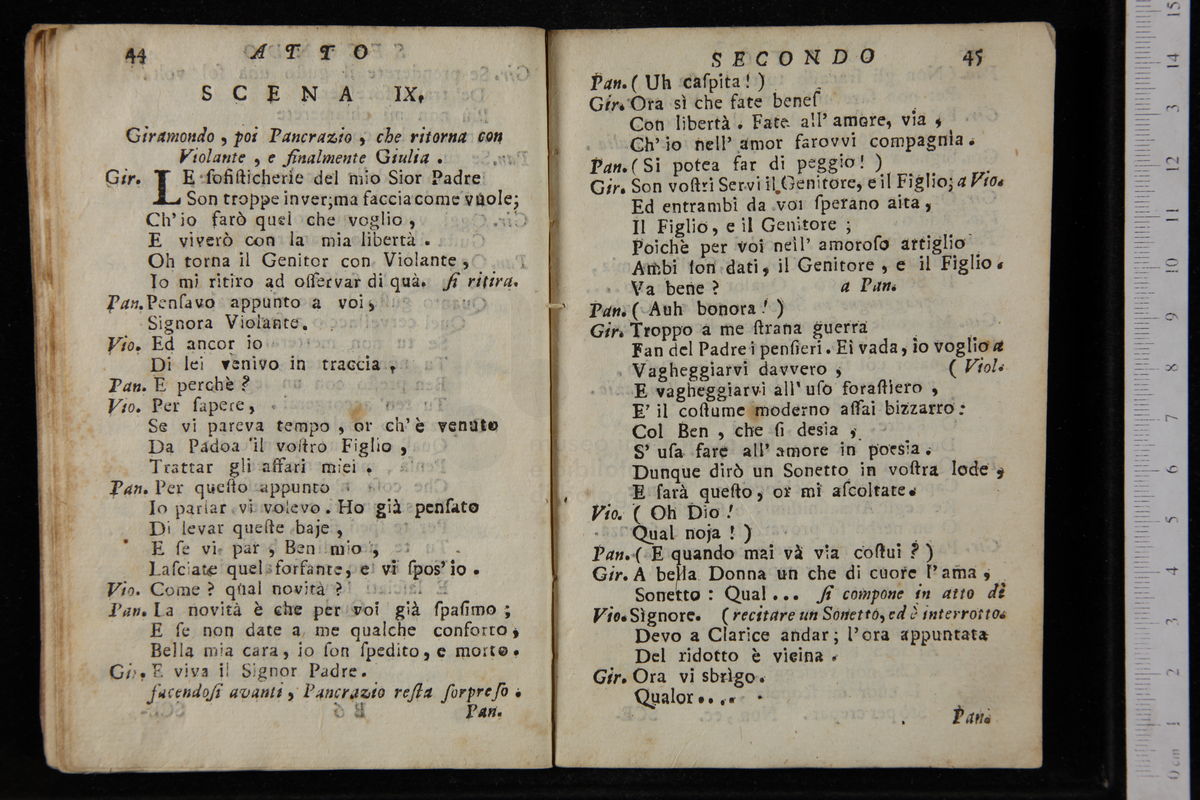 44 ATTO
SCENA IX.
Giramondo, poi Pancrazio, che ritorna con
Violante, e finalmente Giulia.
Gir. LE ſofiſticherie del mio Sior Padre
Son troppe inver; ma faccia come vuole;
Ch' io farò quel che voglio,
E viverò con la mia libertà.
Oh torna il Genitor con Violante,
Io mi ritiro ad oſſervar di quà. ſi ritira.
Pan. Penſavo appunto a voi,
Signora Violante.
Vio. Ed ancor io
Di lei venivo in traccia,
Pan. E perchè?
Vio. Per ſapere,
Se vi pareva tempo, or ch' è venuto
Da Padoa il voſtro Figlio,
Trattar gli affari miei.
Pan. Per queſto appunto
Io parlar vi volevo. Ho già penſato
Di levar queſte baje,
E ſe vi par, Ben mio,
Laſciate quel forfante, e vi ſpos' io.
Vio. Come? qual novità?
Pan. La novità è che per voi già ſpaſimo;
E ſe non date a me qualche conforto,
Bella mia cara, io ſon ſpedito, e morto.
Gir. E viva il Signor Padre.
facendoſi avanti, Pancrazio reſta ſorpreſo.
Pan.
SECONDO 45
Pan. (Uh caſpita!)
Gir. Ora sì che fate beneſ
Con libertà. Fate all' amore, via,
Ch' io nell' amor farovvi compagnia.
Pan. (Si potea far di peggio!)
Gir. Son voſtri Servi il Genitore, e il Figlio; a Vio.
Ed entrambi da voi ſperano aita,
Il Figlio, e il Genitore;
Poichè per voi nell' amoroſo artiglio
Ambi ſon dati, il Genitore, e il Figlio.
Va bene? a Pan.
Pan. (Auh bonora!)
Gir. Troppo a me ſtrana guerra
Fan del Padre i penſieri. Ei vada, io voglio a
Vagheggiarvi davvero, (Viol.
E vagheggiarvi all' uſo foraſtiero,
E' il coſtume moderno aſſai bizzarro:
Col Ben, che ſi desìa,
S' uſa fare all' amore in poesìa.
Dunque dirò un Sonetto in voſtra lode,
E ſarà queſto, or mi aſcoltate.
Vio. (Oh Dio!
Qual noja!)
Pan. (E quando mai và via coſtui?)
Gir. A bella Donna un che di cuore l'ama,
Sonetto: Qual... ſi compone in atto di
Vio. Signore. (recitare un Sonetto, ed è interrotto.
Devo a Clarice andar; l'ora appuntata
Del ridotto è vicina.
Gir. Ora vi sbrigo.
Qualor....
Pan.
0cm 1 2 3 4 5 6 7 8 9 10 11 12 13 14 15